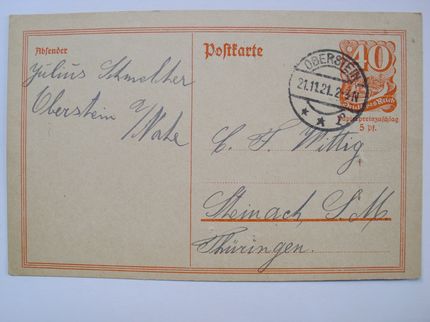 Absender
Julius Schmelzer
Oberstein a/Nahe
Postkarte
OBERSTEIN
21.11.21. 2-3 N
* * f
40
Deutsches Reich
Papierpreiszuschlag
5 pf.
C. F. Wittig
Steinach, S. M.
Thüringen.